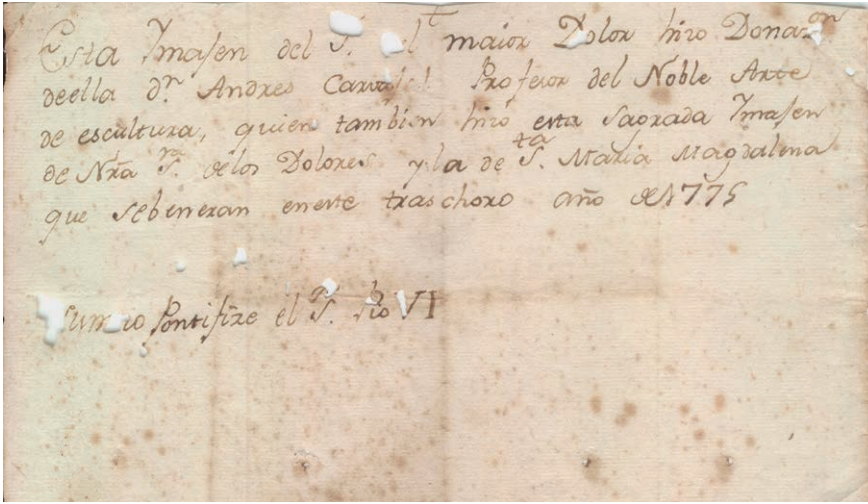 Esta Ymajen del S.r del maior Dolor hizo Donaz.on
deella d.n Andres Carvajal Profesor del Noble Arte
de escultura, quien tambien hizo esta Sagrada Ymajen
de Nrã S.ra delos Dolores y la de S.ta Maria Magdalena
que sebeneran eneste traschoro año de 1775
Sumo Pontifize el S.r Pio VI